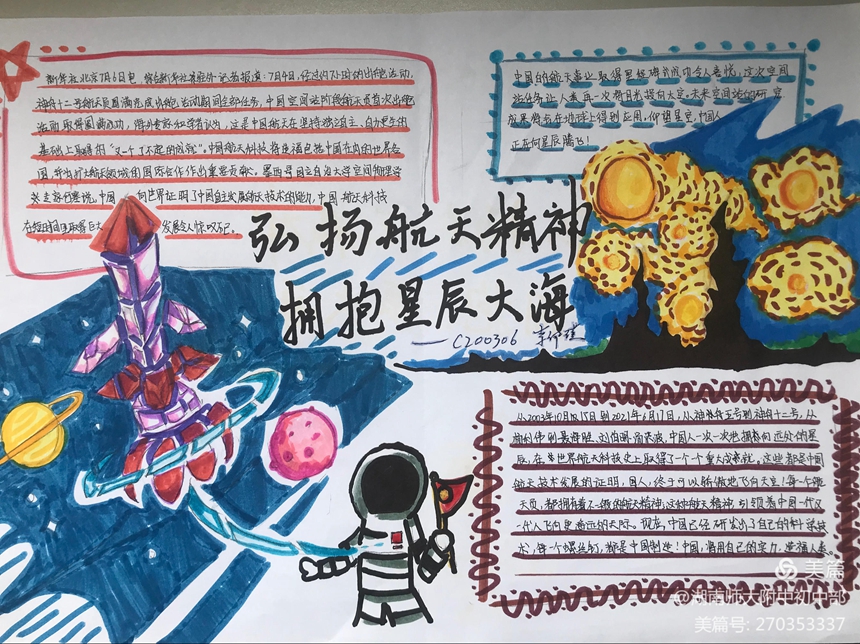 新华社北京7月6日电 综合新华社驻外记者报道:7月4日,经过约7小时的出舱活动,
神舟十二号航天员圆满完成出舱活动期间全部任务,中国空间站阶段航天员首次出舱
活动取得圆满成功,海外专家和学者认为,这是中国航天在坚持独立自主、自力更生的
基础上取得的“又一个了不起的成就”。中国航天科技将造福包括中国在内的世界各
国,并为扩大航天领域的国际合作作出重要贡献。墨西哥国立自治大学空间物理学
家 说,中国 向世界证明了中国自主发展航天技术的能力,中国航天科技
在短时间里取得巨大 发展令人惊叹不已。
中国的航天事业取得累累硕果 令人喜悦,这次空间
站任务让人类再一次将目光投向太空,未来空间站的研究
成果将会在地球上得到应用。仰望星空,中国人
正在向星辰腾飞!
弘扬航天精神
拥抱星辰大海
——C200306
从2003年10月15日到2021年6月17日,从神舟五号到神舟十二号,从
杨利伟到聂海胜、刘伯明、汤洪波,中国人一次一次地拥抱向远处的星
辰,在世界航天科技史上取得了一个个重大成就。这些都是中国
航天技术发展的证明,国人,终于可以骄傲地飞向天空!每个航
天员,都拥有着不一般的航天精神,这种航天精神,引领着中国一代又
一代人飞向更遥远的天际。现在,中国已经研发了自己的科学技
术,每个螺丝钉,都是中国制造!中国,将用自己的实力,造福人类。
美篇
@湖南师大附中初中部
美篇号: 270353337